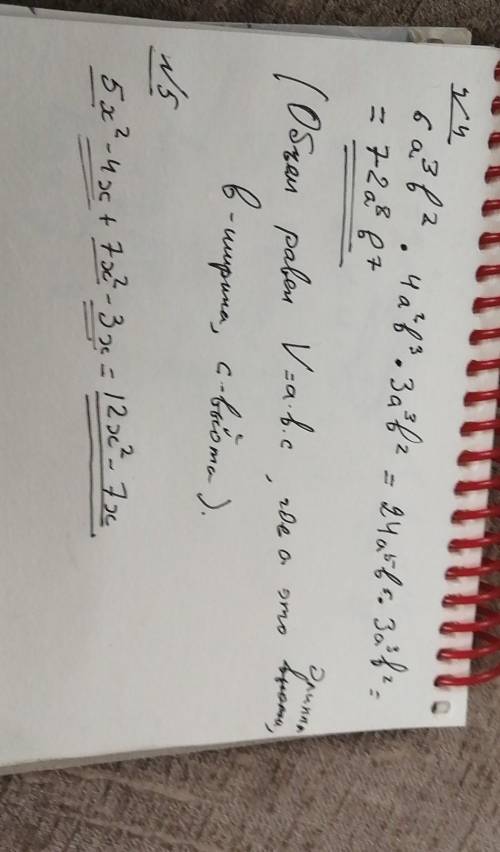 №4
6a³b² · 4a²b³ · 3a³b² = 24a⁵b⁵ · 3a³b² =
= 72a⁸b⁷
(Объем равен V=a·b·c, где a это длина,
b-ширина, c-высота).
№5
5x² - 4x + 7x² - 3x = 12x² - 7x